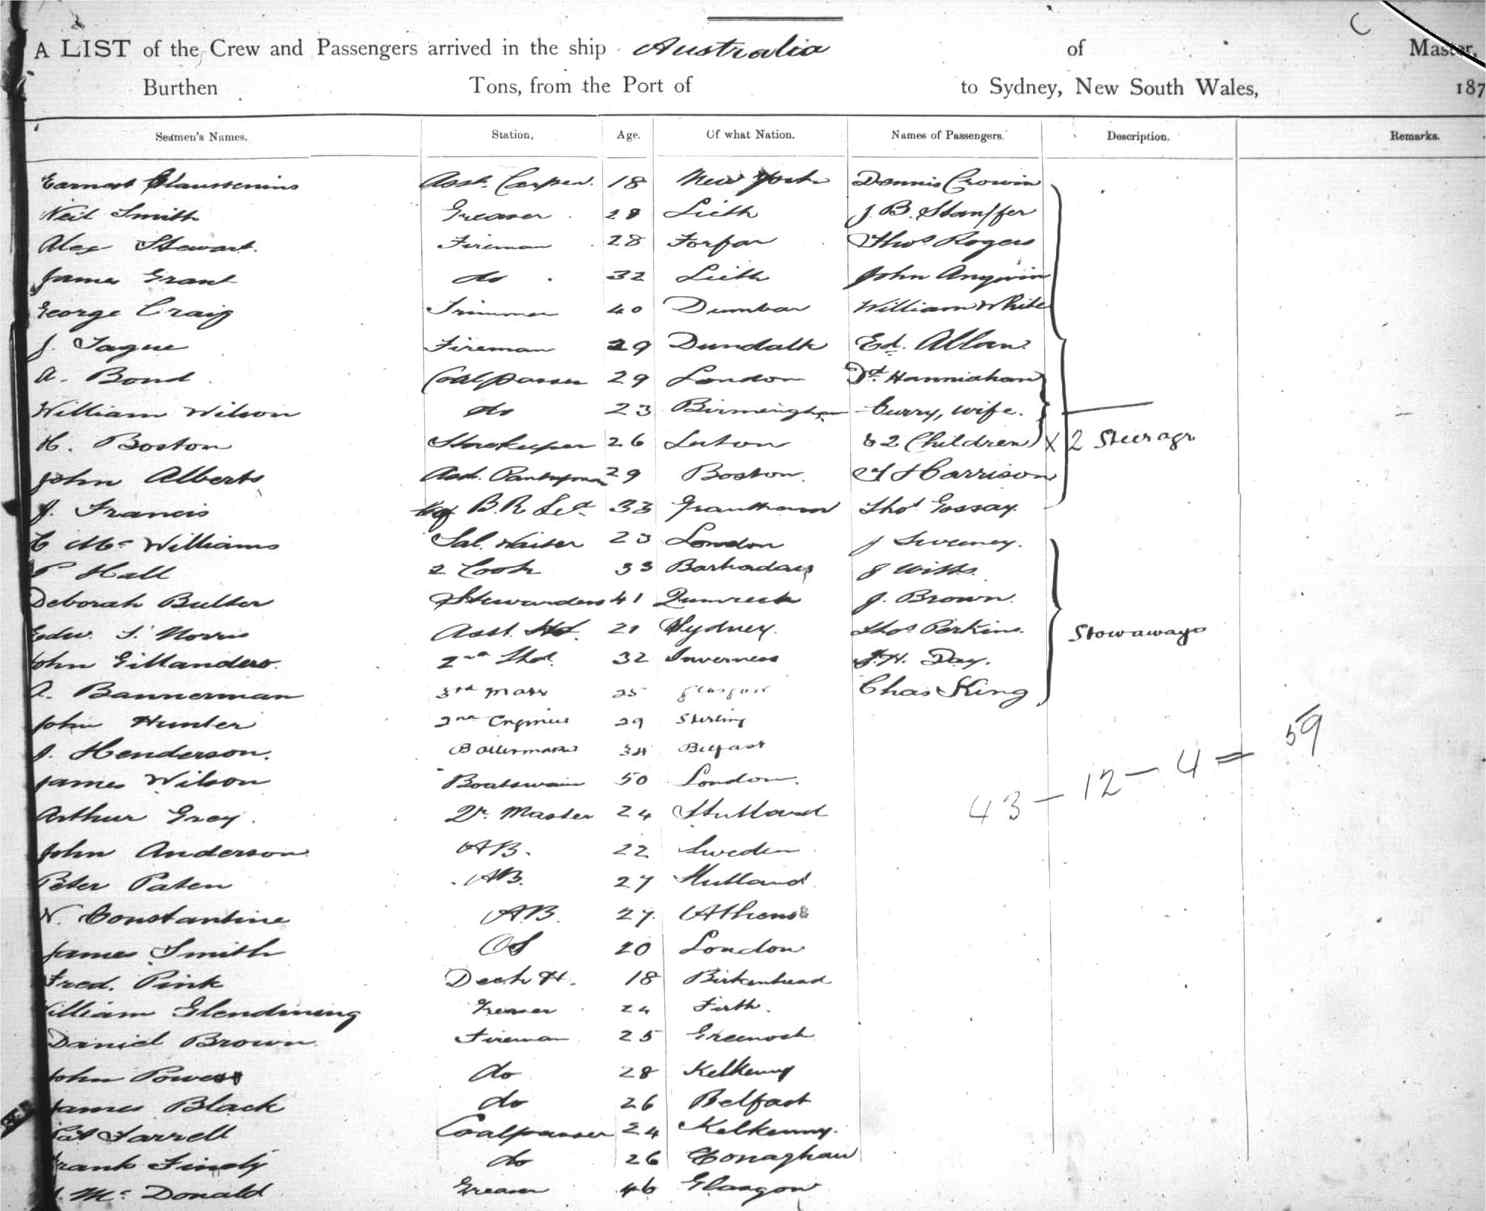 C
A LIST of the Crew and Passengers arrived in the ship Australia of Master,
Burthen Tons, from the Port of to Sydney, New South Wales, 187
Seamen's Names. Station. Age. Of what Nation. Names of Passengers. Description. Remarks.
Earnest Asst. Carpen. 18 New York Dennis Crowin
Neil Smith Greaser 28 Lieth J B. Stauffer
Alex Stewart. Fireman 28 Forfar Thos Rogers
James Grant do 32 Lieth John Angwin
George Craig Trimmer 40 Dumbar William White
J. Tague Fireman 29 Dundalk Ed. Allan
A. Bond Coalpasser 29 London Hannishan
William Wilson do 23 Birmingham Curry, wife.
H. Boston Storekeeper 26 Luton & 2 Children X 2 Steerage
John Alberts Asst. Pantryman 29 Boston. Harrison
J. Francis B. R. 33 Grantham Thos Gossay
C Mc Williams Sal. Waiter 23 London J Sweeney.
P Hall 2 Cook 33 Barbadoes J Witts
Deborah Butler Stewardess 41 J. Brown
Edw. S. Norris Asst. 21 Sydney. Thos Perkins. Stowaways
John Gillanders. 2nd 32 Inverness J. H. Day.
A. Bannerman 3rd Mate 25 Glasgow Chas King
John Hunter 2nd Engineer 29 Stirling
J. Henderson. Boilermaker 34 Belfast
James Wilson Boatswain 50 London.
Arthur Grey. Qr. Master 24 Shetland
43 - 12 - 4 = 59
John Anderson AB. 22 Sweden
Peter Paten AB. 27 Shetland
N. Constantine AB. 27 Athens
James Smith OS 20 London
Fred. Pink Deck H. 18 Birkenhead
William Glendining Greaser 24 Firth.
Daniel Brown Fireman 25 Greenock
John Powers do 28 Kelkenny
James Black do 26 Belfast
Pat Farrell Coalpasser 24 Kelkenny.
Frank Finely do 26 Conaghan
Mc Donald Greaser 46 Glasgow